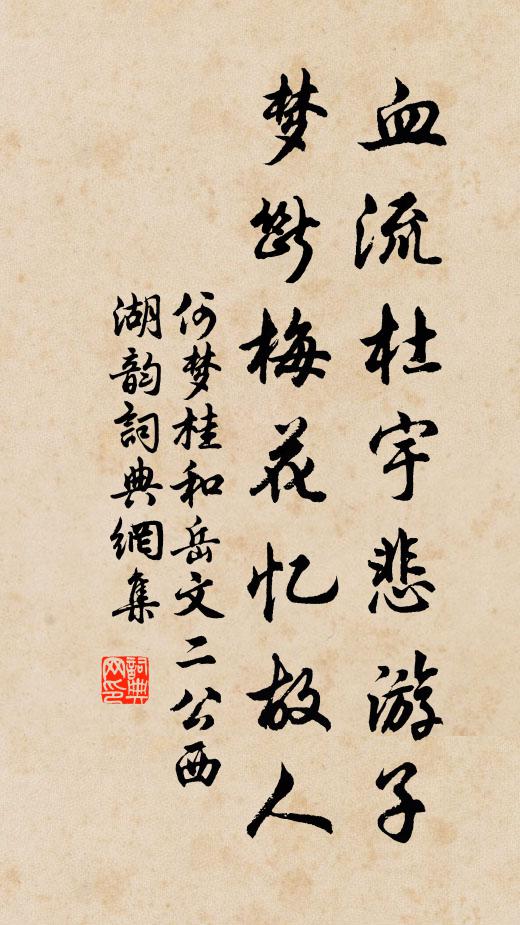 血流杜宇悲游子
梦断梅花忆故人
何梦桂和岳文二公西
湖韵詞典網集
詞典
网印